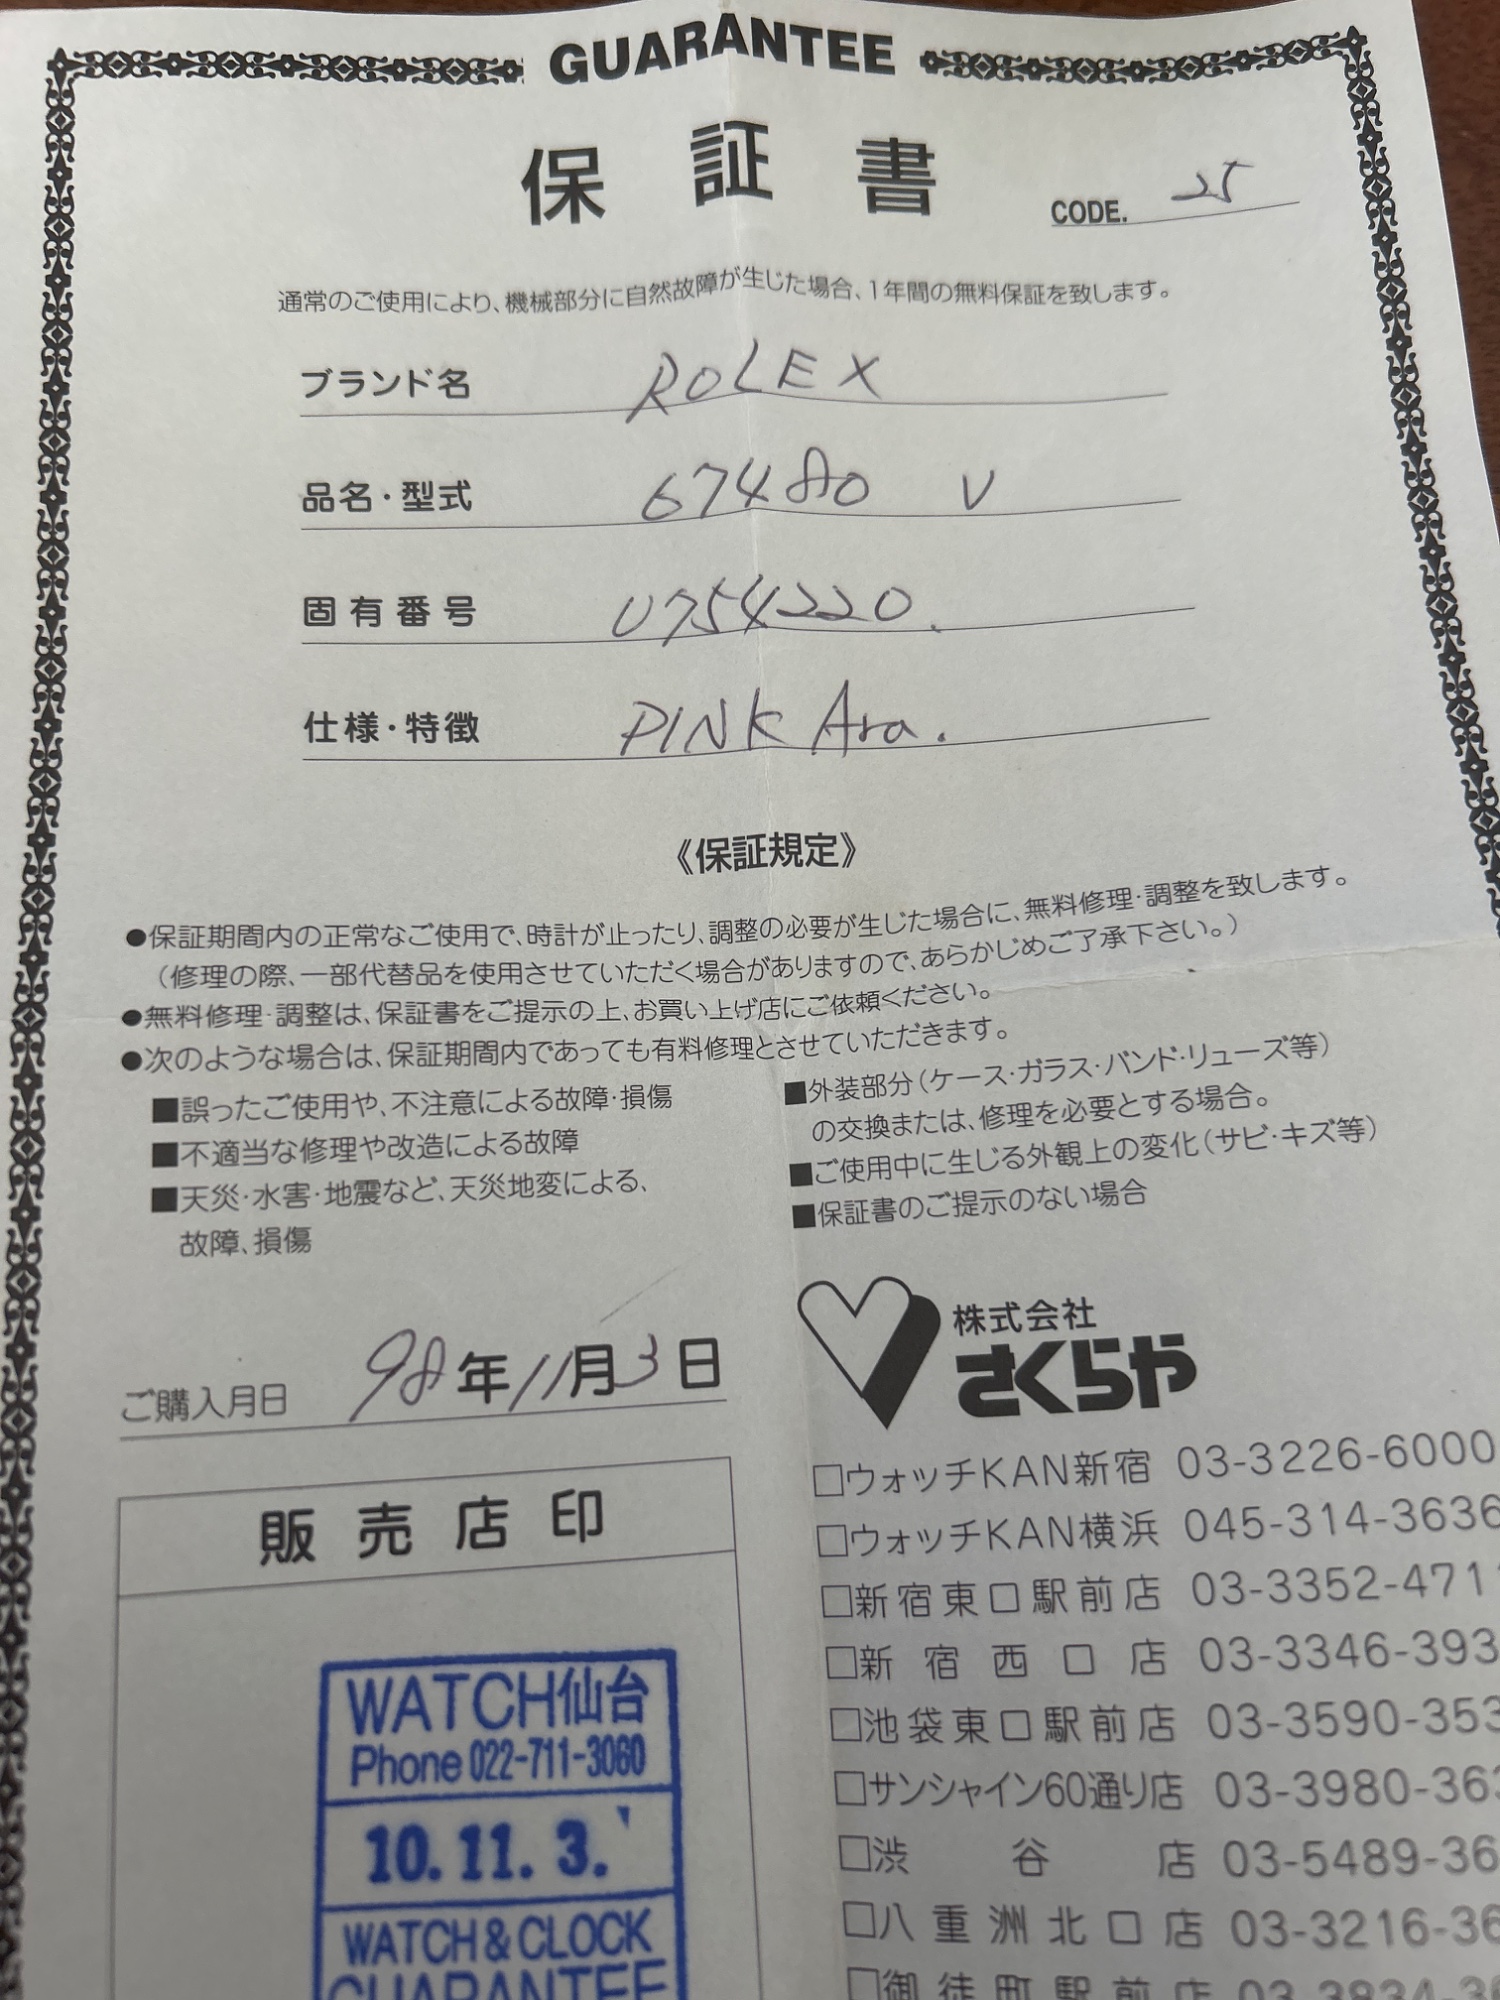 GUARANTEE
保証書
CODE. 25
通常のご使用により、機械部分に自然故障が生じた場合、1年間の無料保証を致します。
ブランド名 ROLEX
品名・型式 67480 V
固有番号 U754220.
仕様・特徴 PINK Ara.
《保証規定》
●保証期間内の正常なご使用で、時計が止ったり、調整の必要が生じた場合に、無料修理・調整を致します。
（修理の際、一部代替品を使用させていただく場合がありますので、あらかじめご了承下さい。）
●無料修理・調整は、保証書をご提示の上、お買い上げ店にご依頼ください。
●次のような場合は、保証期間内であっても有料修理とさせていただきます。
■誤ったご使用や、不注意による故障・損傷
■不適当な修理や改造による故障
■天災・水害・地震など、天災地変による、
故障、損傷
■外装部分（ケース・ガラス・バンド・リューズ等）
の交換または、修理を必要とする場合。
■ご使用中に生じる外観上の変化（サビ・キズ等）
■保証書のご提示のない場合
ご購入月日 98年11月3日
販売店印
WATCH仙台
Phone 022-711-3060
10.11.3.
WATCH & CLOCK
GUARANTEE
株式会社
さくらや
□ウォッチKAN新宿 03-3226-6000
□ウォッチKAN横浜 045-314-3636
□新宿東口駅前店 03-3352-471
□新宿西口店 03-3346-393
□池袋東口駅前店 03-3590-353
□サンシャイン60通り店 03-3980-363
□渋谷店 03-5489-36
□八重洲北口店 03-3216-36
□御徒町駅前店 03-3834-36